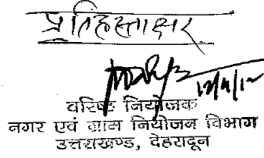 प्रतिहस्ताक्षर
वरिष्ठ नियोजक
नगर एवं ग्राम नियोजन विभाग
उत्तराखण्ड, देहरादून